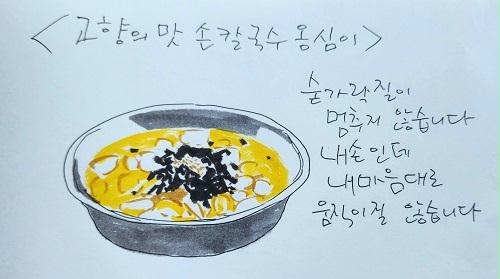 <고향의 맛 손칼국수 옹심이>
숟가락질이
멈추지 않습니다
내손인데
내마음대로
움직이질 않습니다